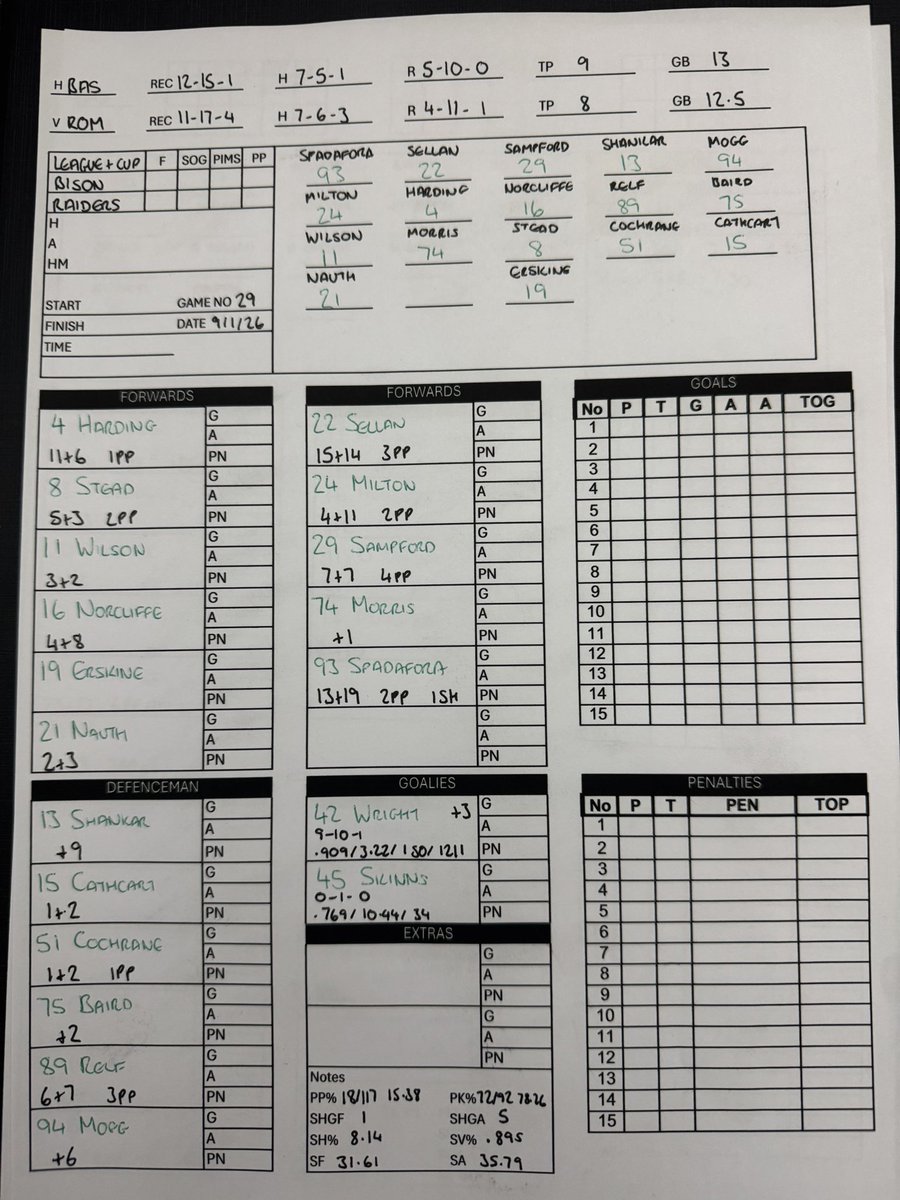 H BAS REC 12-15-1 H 7-5-1 R 5-10-0 TP 9 GB 13
V ROM REC 11-17-4 H 7-6-3 R 4-11-1 TP 8 GB 12.5
LEAGUE + CUP F SOG PIMS PP
BISON
RAIDERS
H
A
HM
START GAME NO 29
FINISH DATE 9/1/26
TIME
SPADAFORA SELLAN SAMPFORD SHANKAR MOGG
93 22 29 13 94
MILTON HARDING NORCLIFFE RELF BAIRD
24 4 16 89 75
WILSON MORRIS STEAD COCHRANE CATHCART
11 74 8 51 15
NAUTH ERSKINE
21 19
FORWARDS
4 HARDING G
A
11+6 1PP PN
8 STEAD G
A
5+3 2PP PN
11 WILSON G
A
3+2 PN
16 NORCLIFFE G
A
4+8 PN
19 ERSKINE G
A
PN
21 NAUTH G
A
2+3 PN
FORWARDS
22 SELLAN G
A
15+14 3PP PN
24 MILTON G
A
4+11 2PP PN
29 SAMPFORD G
A
7+7 4PP PN
74 MORRIS G
A
+1 PN
93 SPADAFORA G
A
13+19 2PP 1SH PN
G
A
PN
GOALS
No P T G A A TOG
1
2
3
4
5
6
7
8
9
10
11
12
13
14
15
DEFENCEMAN
13 SHANKAR G
A
+9 PN
15 CATHCART G
A
1+2 PN
51 COCHRANE G
A
1+2 1PP PN
75 BAIRD G
A
+2 PN
89 RELF G
A
6+7 3PP PN
94 MOGG G
A
+6 PN
GOALIES
42 WRIGHT +3 G
9-10-1 A
.909/3.22/150/1211 PN
45 SKINNS G
0-1-0 A
.769/10.44/34 PN
EXTRAS
G
A
PN
G
A
PN
Notes
PP% 18/117 15.38 PK% 72/92 78.26
SHGF 1 SHGA 5
SH% 8.14 SV% .895
SF 31.61 SA 35.79
PENALTIES
No P T PEN TOP
1
2
3
4
5
6
7
8
9
10
11
12
13
14
15